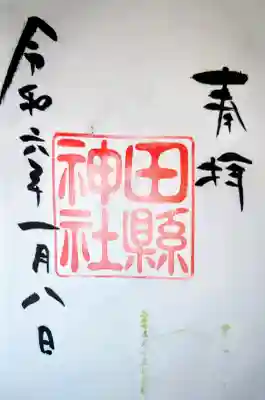 奉拝
田縣神社
令和六年一月八日